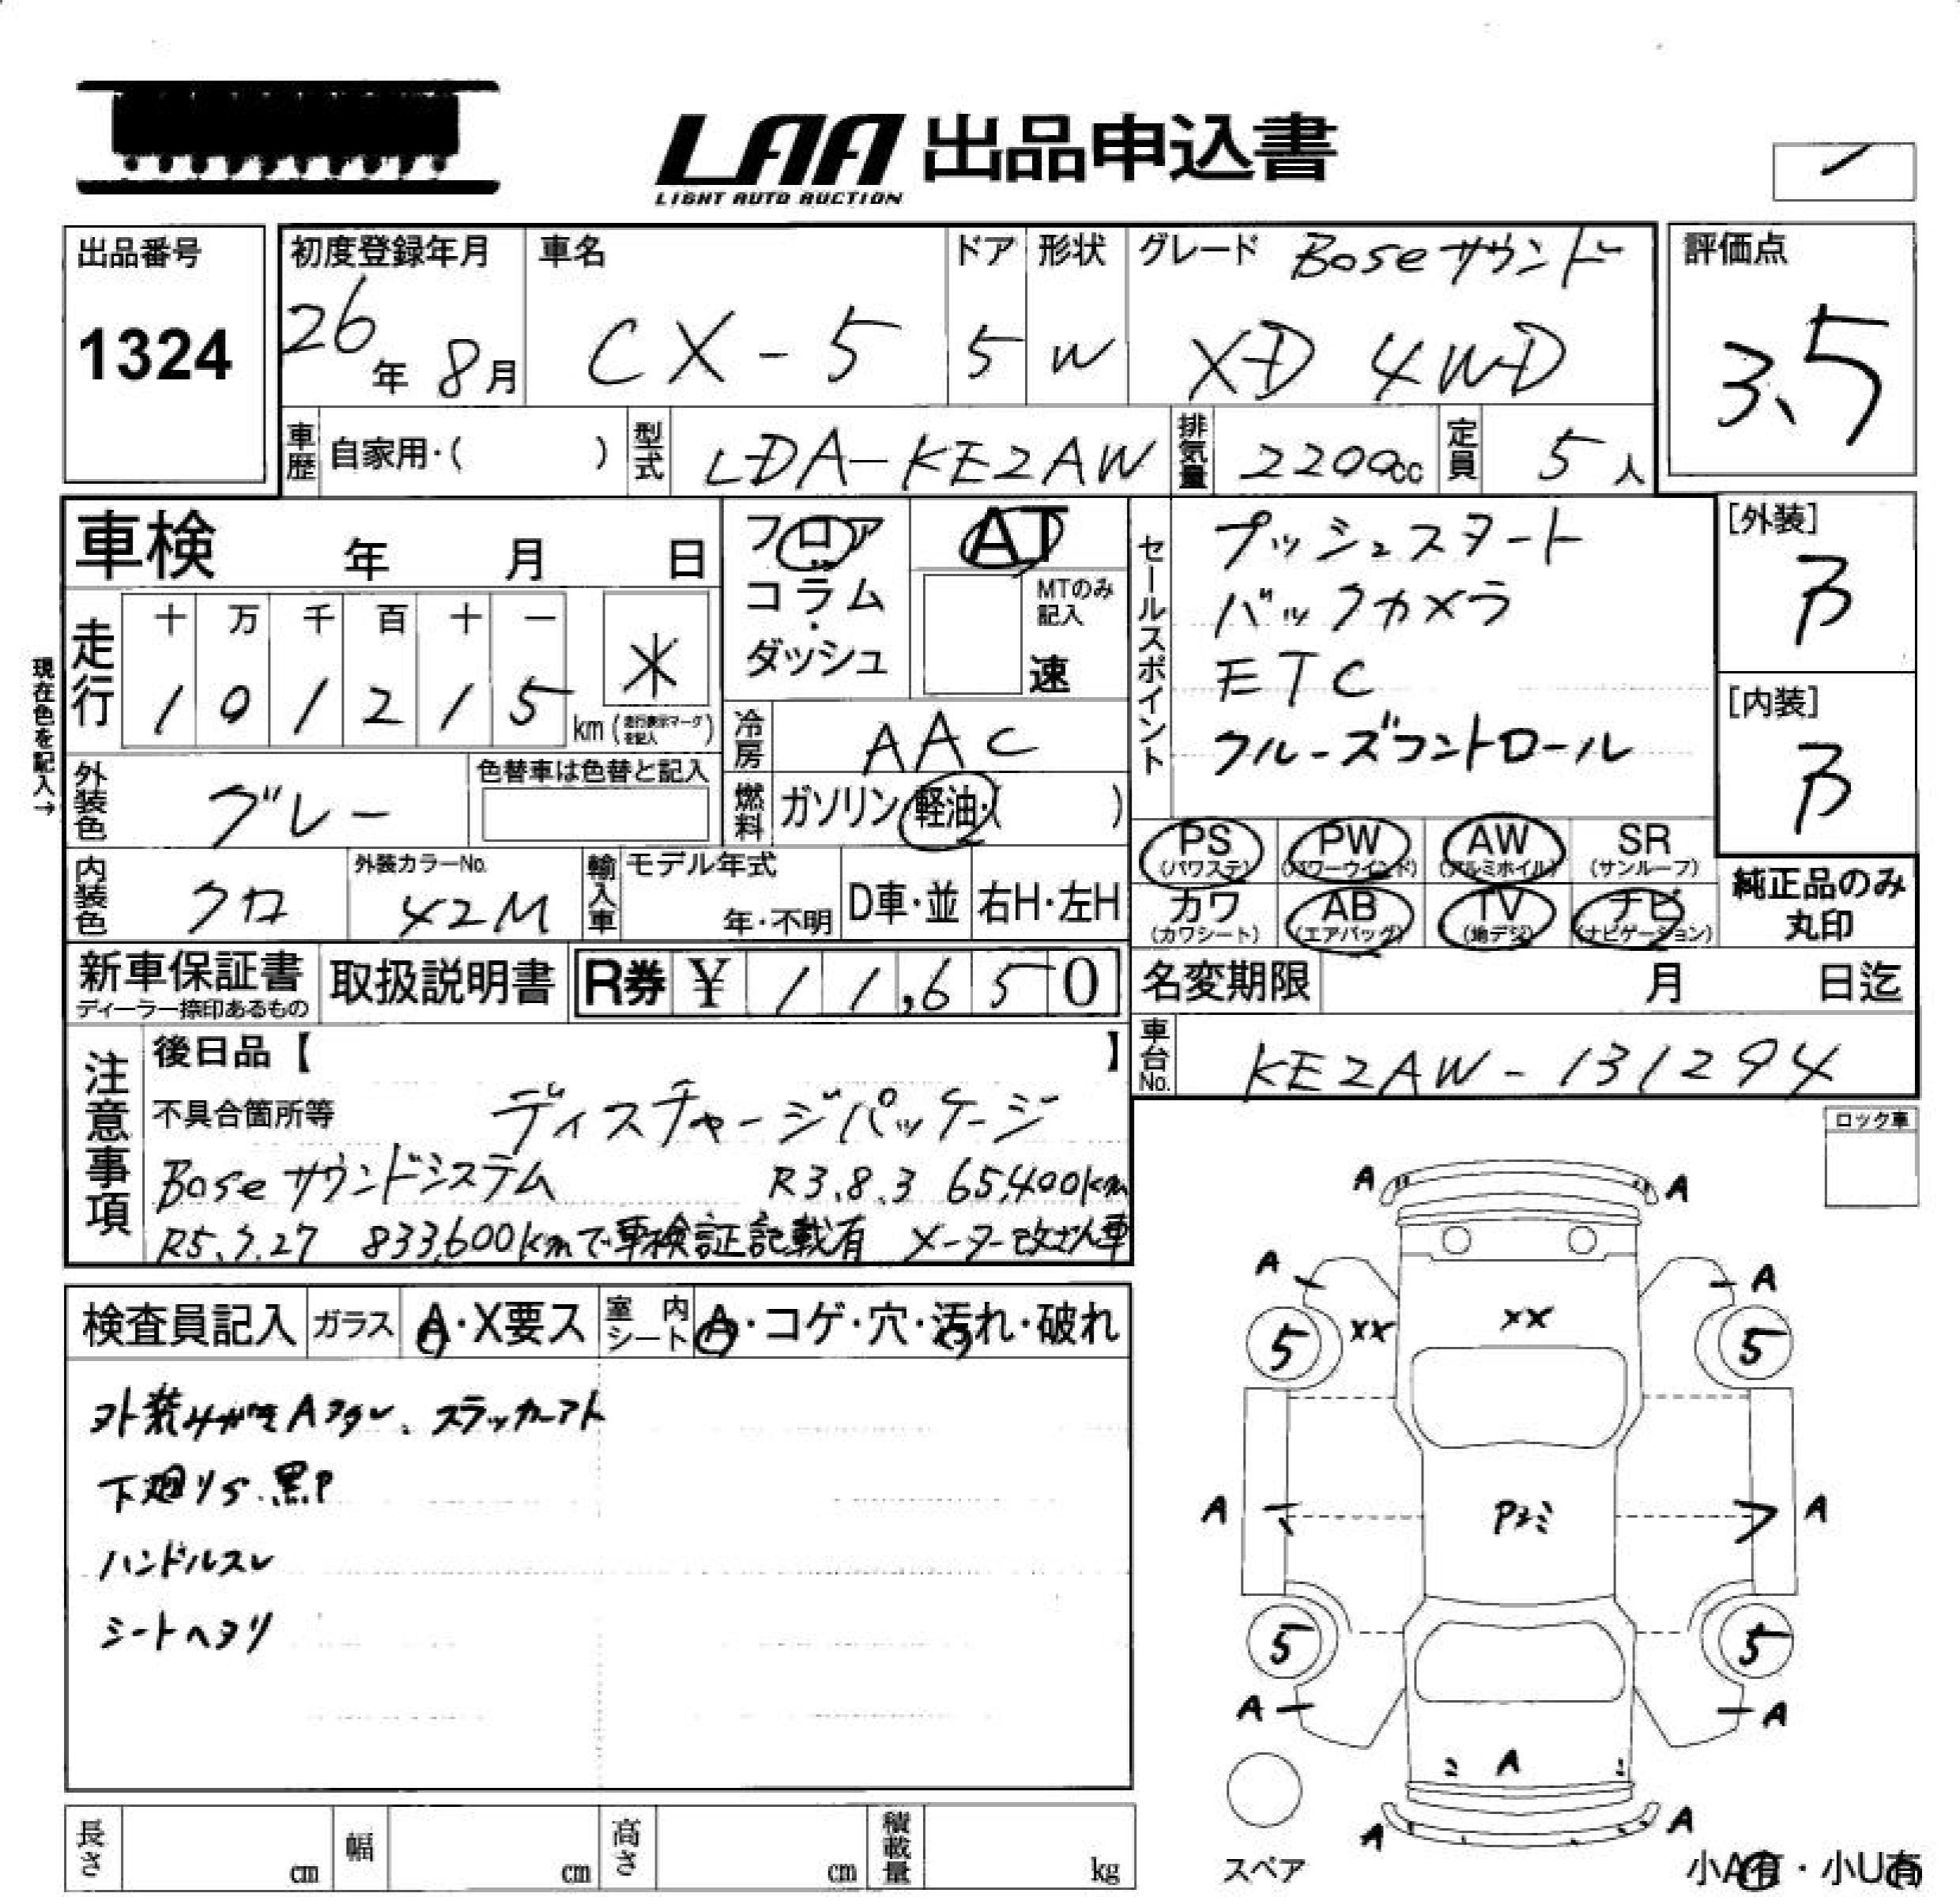 LAA 出品申込書
LIGHT AUTO AUCTION
出品番号
1324
初度登録年月
26年 8月
車名
CX-5
ドア
5
形状
W
グレード Boseサウンド
XD 4WD
評価点
3.5
車歴 自家用・( )
型式 LDA-KE2AW
排気量 2200cc
定員 5人
車検 年 月 日
フロア
コラム
・
ダッシュ
AT
MTのみ
記入
速
セールスポイント
プッシュスタート
バックカメラ
ETC
クルーズコントロール
[外装]
B
[内装]
B
現在色を記入→
走行
十 万 千 百 十 一
1 0 1 2 1 5 km
*
(走行表示マークを記入)
冷房 AAC
燃料 ガソリン・軽油・( )
外装色 グレー
色替車は色替と記入
内装色 クロ
外装カラーNo.
42M
輸入車 モデル年式
年・不明
D車・並 右H・左H
PS (パワステ)
PW (パワーウインド)
AW (アルミホイル)
SR (サンルーフ)
カワ (カワシート)
AB (エアバッグ)
TV (地デジ)
ナビ (ナビゲーション)
純正品のみ
丸印
新車保証書
ディーラー捺印あるもの
取扱説明書
R券 ¥ 11,650
名変期限 月 日迄
車台No. KE2AW-131294
注意事項
後日品【 】
不具合箇所等 ディスチャージパッケージ
Bose サウンドシステム R3.8.3 65,400km
R5.7.27 833,600kmで車検証記載有 メーター改ざん車
ロック車
検査員記入 ガラス A・X要ス 室内シート A・コゲ・穴・汚れ・破れ
下廻りS.黒P
ハンドルスレ
シートヘタリ
A A
A A
XX XX
5 5
A A
5 5
A A
A
A A
スペア
小A有・小U有
長さ cm
幅 cm
高さ cm
積載量 kg